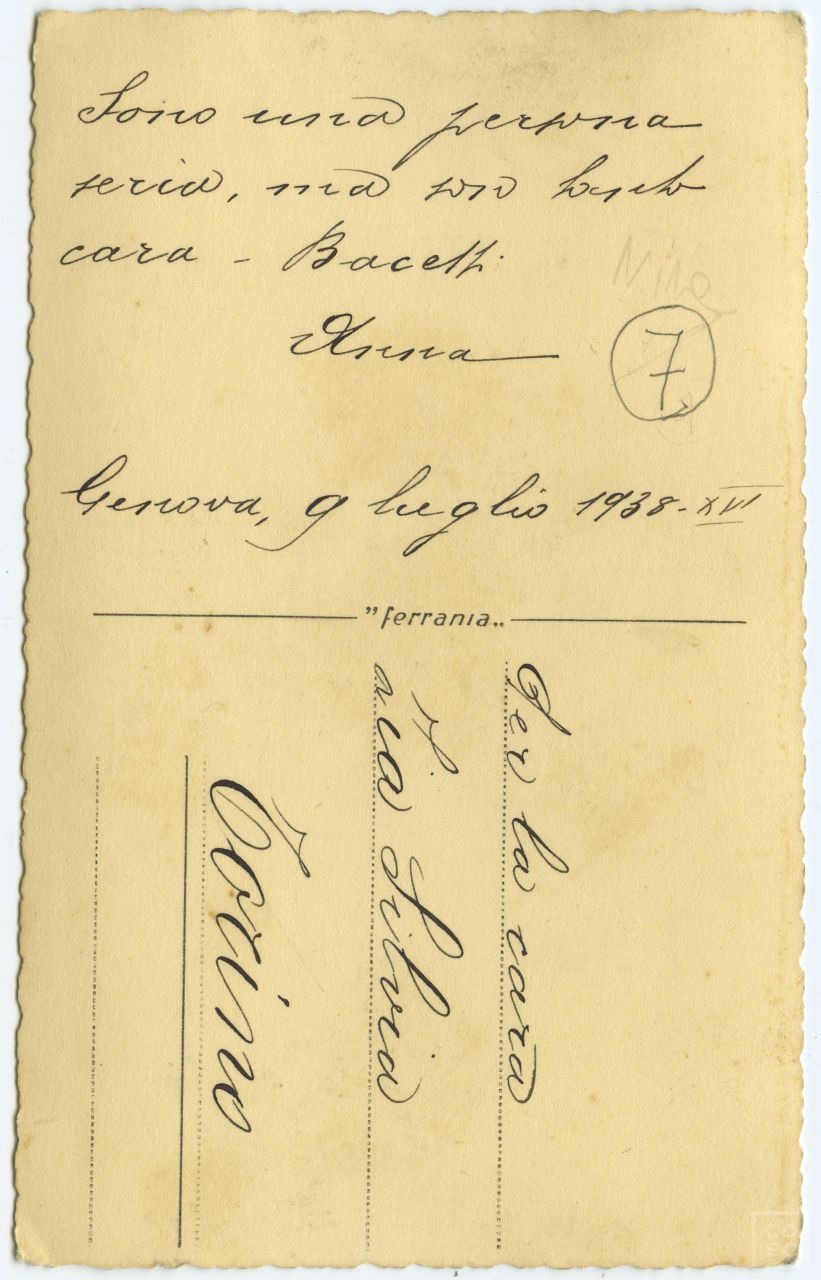 Sono una persona
seria, ma son tanto
cara - Bacetti
Anna
7
Genova, 9 luglio 1938-XVI
"ferrania"
Per la cara
zia Silvia
Torino